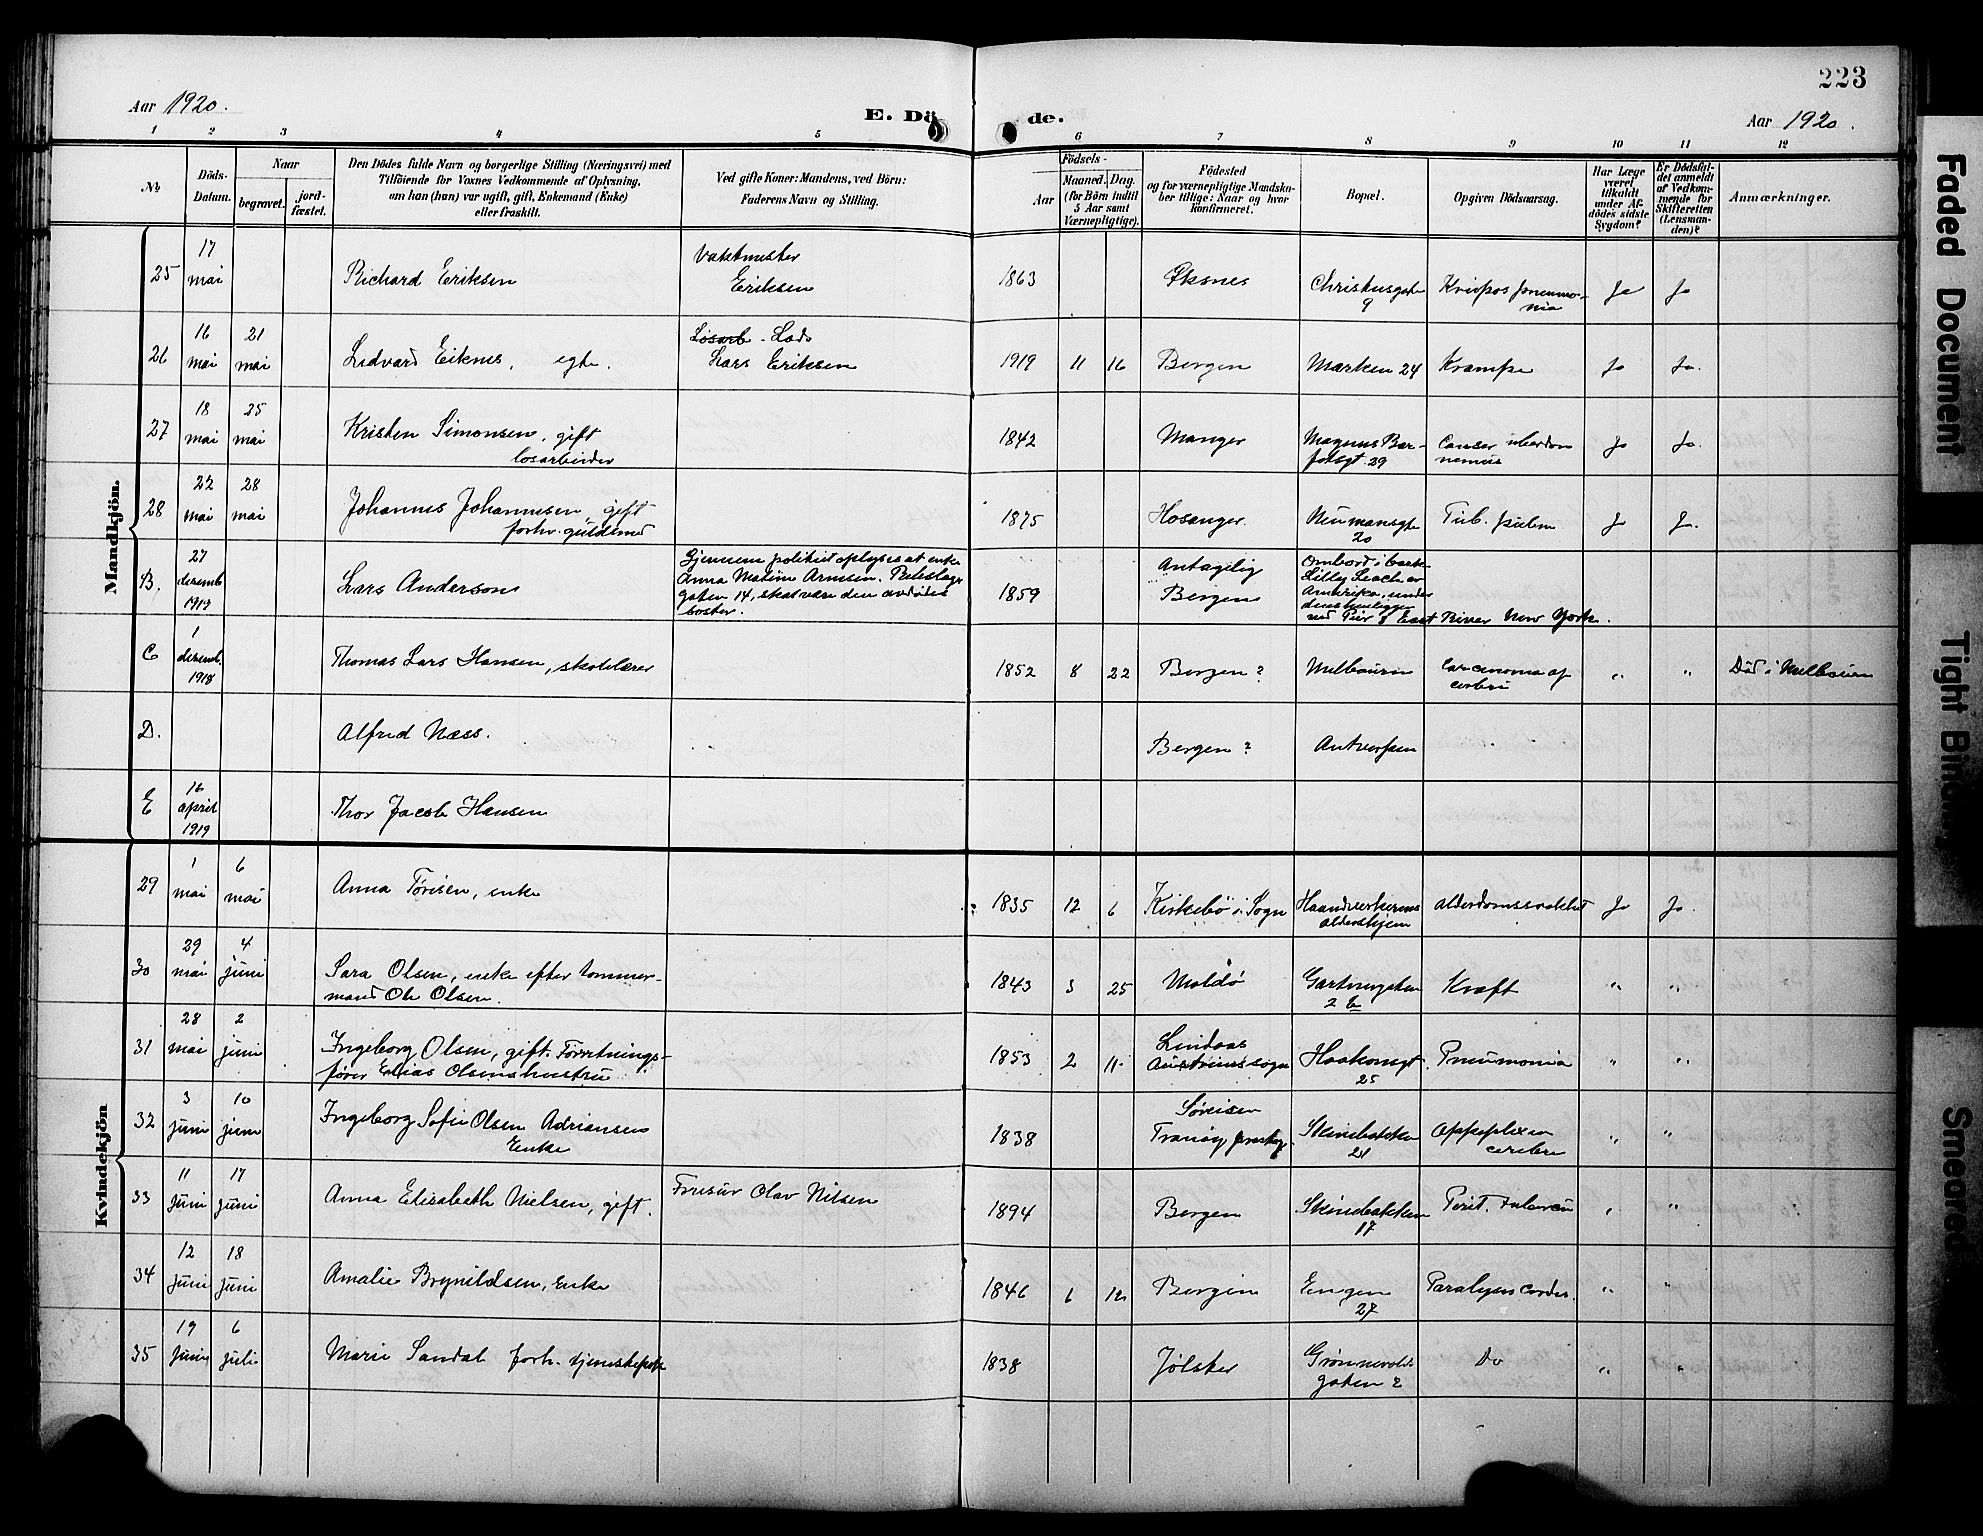 223
Aar 1920.
E. Dö de.
Aar 1920.
1 2 3 4 5 6 7 8 9 10 11 12
№
Döds-
Datum.
Naar
begravet. jord-
fæstet.
Den Dödes fulde Navn og borgerlige Stilling (Næringsvei) med
Tilföiende for Voxnes Vedkommende af Oplysning,
om han (hun) var ugift, gift, Enkemand (Enke)
eller fraskilt.
Ved gifte Koner: Mandens, ved Börn:
Faderens Navn og Stilling.
Födsels-
Aar
Maaned. Dag.
(for Börn indtil
5 Aar samt
Værnepligtige).
Födested
og for værnepligtige Mandska-
ber tillige: Naar og hvor
konfirmeret.
Bopæl.
Opgiven Dödsaarsag.
Har Læge
været
tilkaldt
under Af-
dödes sidste
Sygdom?
Er Dödsfal-
det anmeldt
af Vedkom-
mende for
Skifteretten
(Lensman-
den)?
Anmærkninger.
Mandkjön.
25 17 mai Richard Eriksen Vaktmester Eriksen 1863 Øksnes Christiesgate 9 Krupøs pneumo-
nia Ja Ja
26 16 mai 21 mai Lidvard Eiknes, egte. Løsarb. Lars Eriksen 1919 11 16 Bergen Marken 24 Krampe Ja Ja.
27 18 mai 25 mai Kristen Simonsen, gift
løsarbeider 1842 Manger Magnus Bar-
fotsgt. 29 Cancer Ja Ja.
28 22 mai 28 mai Johannes Johannesen, gift
forhv. 1875 Hosanger Neumansgte
20 Tub. pulm Ja Ja.
B. 27 desemb 1919 Lars Anderson Gjennem politiet oplyses at enke
Anna Arnesen,
gaten 14, skal være den avdødes
søster. 1859 Antagelig
Bergen Ombord i bark
Lilly av
Amerika, under
ved Pier 8 East River New York.
C 1 desemb. 1918 Thomas Lars Hansen, skolelærer 1852 8 22 Bergen? Melbourn Carcenoma af
cerebri " " Död i Melbourn
D. Alfred Næss. Bergen? Antwerpen
E 16 april 1919 Thor Jacob Hansen
Kvindekjön
29 1 mai 6 mai Anna Tørisen, enke 1835 12 6 Kirkebø i Sogn Haandverkernes
aldershjem alderdomssvakhet Ja Ja.
30 29 mai 4 juni Sara Olsen, enke efter tømmer-
mand Ole Olsen. 1843 3 25 Moldø Gartnergaten
2 b Kræft " "
31 28 mai 2 juni Ingeborg Olsen, gift. Forretnings-
fører Elias Olsens hustru 1853 2 11 Lindaas
Austreimssogn Haakonsgt
25 Pneumonia " "
32 3 juni 10 juni Ingeborg Sofie Olsen Adriansen
Enke 1838 Søreisen
Tranøy prestegj. Skivebakken
21 Appoplexia
cerebri " "
33 11 juni 17 juni Anna Elisabeth Nielsen, gift. Frisør Olav Nilsen 1894 Bergen Skivebakken
17 Perit. tuberculi " "
34 12 juni 18 juni Amalie Brynildsen, Enke 1846 6 12 Bergen Engen
27 Paralysis cordis. " "
35 19 juni 6 juli Marie Sandal forh. tjenestepike 1838 Jølster Grønnevolds
gaten 2 Do " "
Faded Document
Tight Binding
Smeared